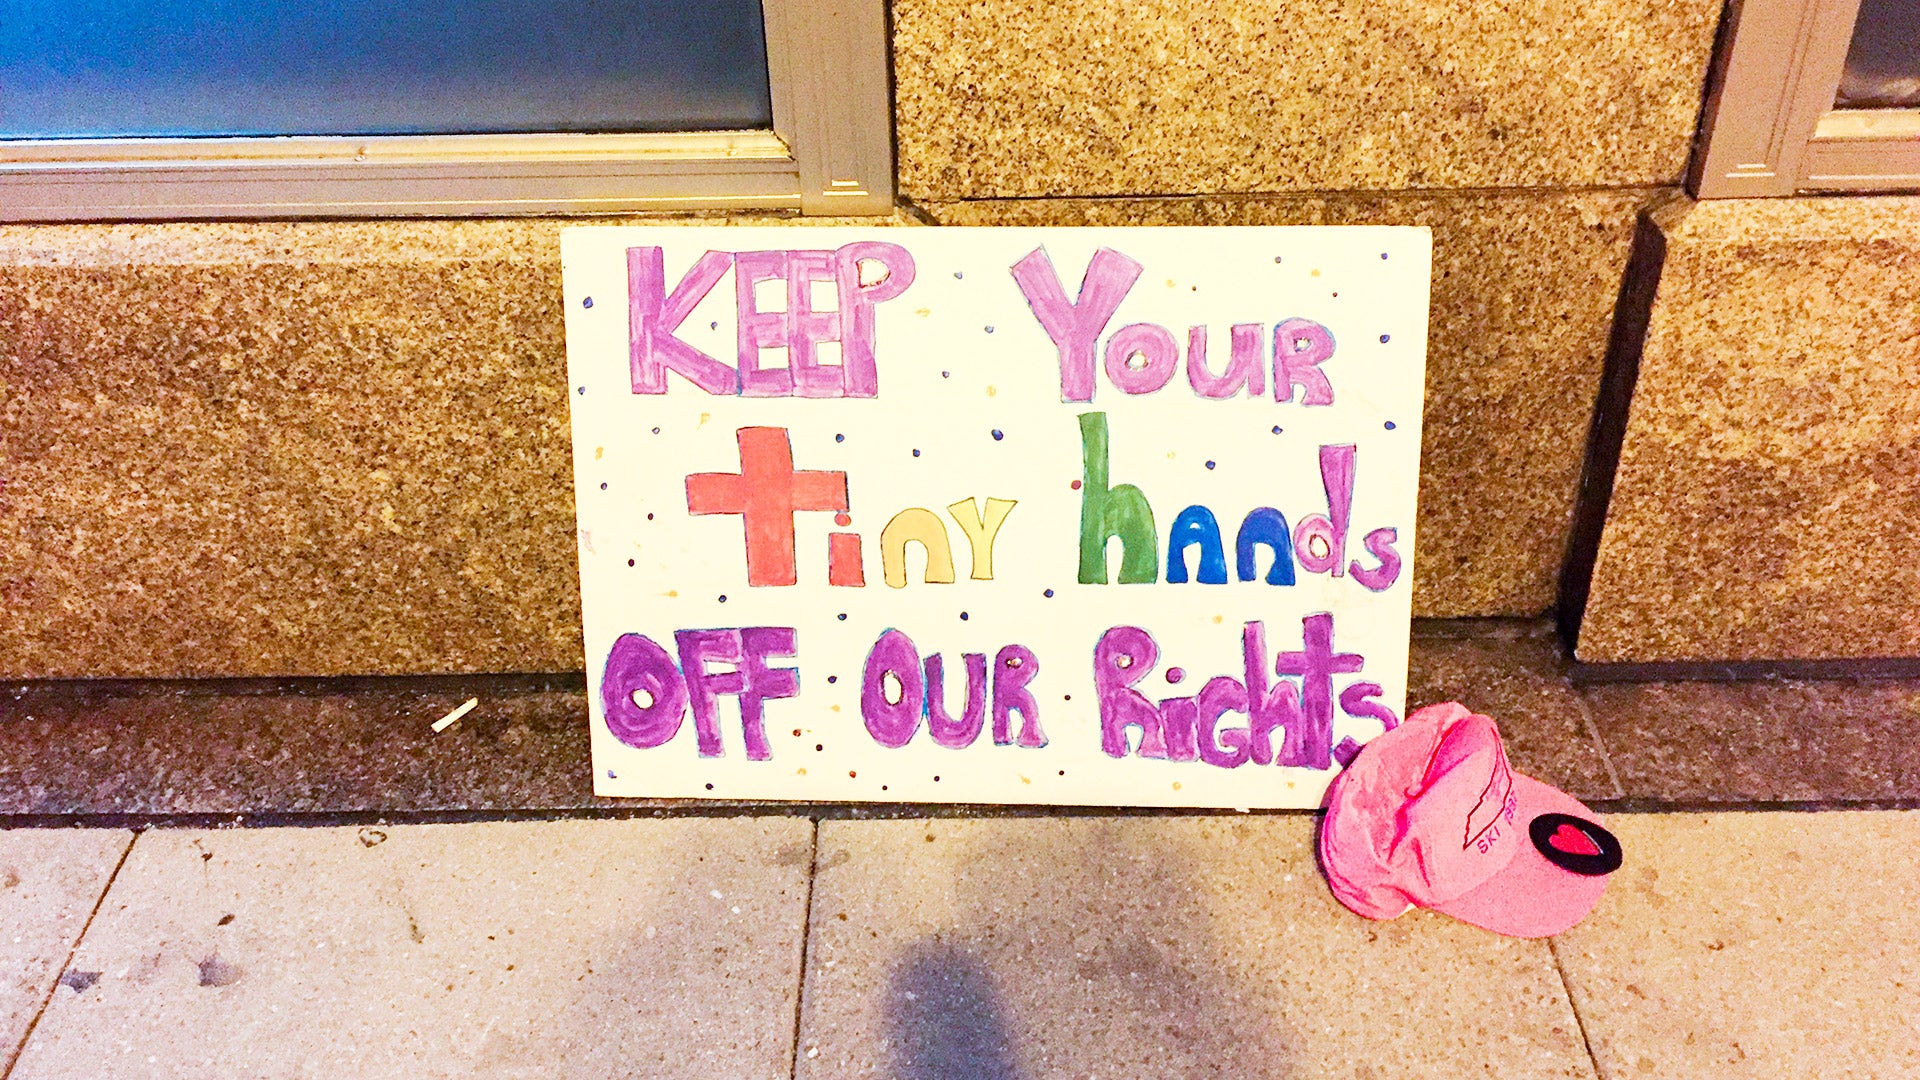 KEEP YOUR
tiny hands
OFF OUR Rights
SKI 1987